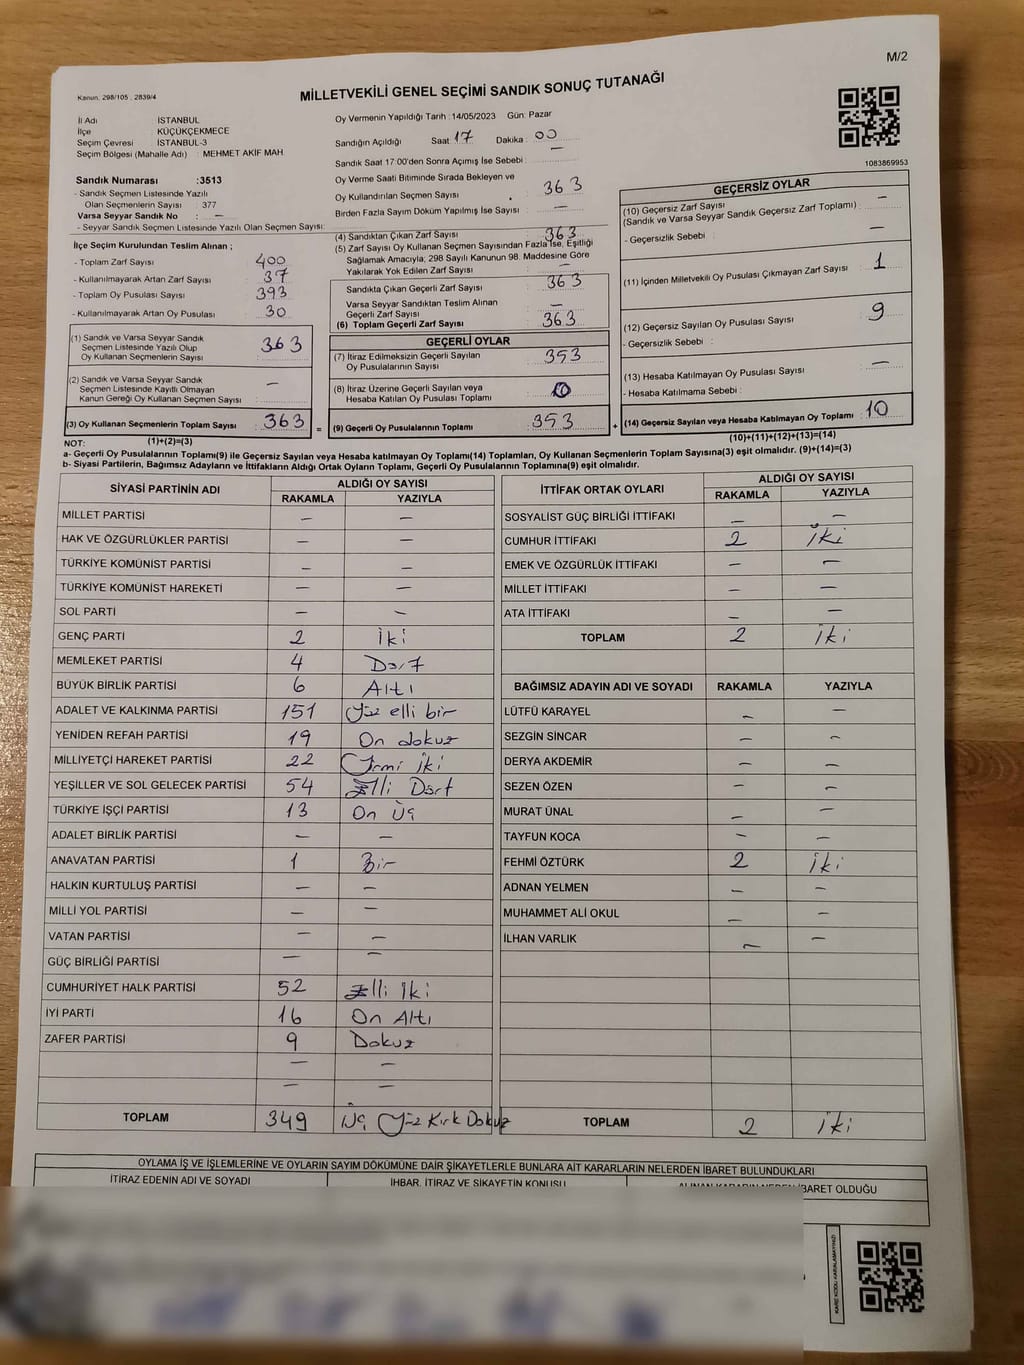 M/2
Kanun, 298/105 , 2839/4
MİLLETVEKİLİ GENEL SEÇİMİ SANDIK SONUÇ TUTANAĞI
İl Adı İSTANBUL
İlçe KÜÇÜKÇEKMECE
Seçim Çevresi İSTANBUL-3
Seçim Bölgesi (Mahalle Adı) : MEHMET AKİF MAH.
Sandık Numarası :3513
- Sandık Seçmen Listesinde Yazılı
Olan Seçmenlerin Sayısı : 377
Varsa Seyyar Sandık No : —
- Seyyar Sandık Seçmen Listesinde Yazılı Olan Seçmen Sayısı:
İlçe Seçim Kurulundan Teslim Alınan ;
- Toplam Zarf Sayısı : 400
- Kullanılmayarak Artan Zarf Sayısı : 37
- Toplam Oy Pusulası Sayısı : 393
- Kullanılmayarak Artan Oy Pusulası : 30
(1) Sandık ve Varsa Seyyar Sandık
Seçmen Listesinde Yazılı Olup
Oy Kullanan Seçmenlerin Sayısı : 363
(2) Sandık ve Varsa Seyyar Sandık
Seçmen Listesinde Kayıtlı Olmayan
Kanun Gereği Oy Kullanan Seçmen Sayısı : —
(3) Oy Kullanan Seçmenlerin Toplam Sayısı : 363 =
Oy Vermenin Yapıldığı Tarih : 14/05/2023 Gün: Pazar
Sandığın Açıldığı Saat 17 Dakika : 00
Sandık Saat 17:00'den Sonra Açımış İse Sebebi : —
Oy Verme Saati Bitiminde Sırada Bekleyen ve
Oy Kullandırılan Seçmen Sayısı : 363
Birden Fazla Sayım Döküm Yapılmış İse Sayısı : —
(4) Sandıktan Çıkan Zarf Sayısı : 363
(5) Zarf Sayısı Oy Kullanan Seçmen Sayısından Fazla İse, Eşitliği
Sağlamak Amacıyla; 298 Sayılı Kanunun 98. Maddesine Göre
Yakılarak Yok Edilen Zarf Sayısı : —
Sandıkta Çıkan Geçerli Zarf Sayısı : 363
Varsa Seyyar Sandıktan Teslim Alınan
Geçerli Zarf Sayısı : —
(6) Toplam Geçerli Zarf Sayısı : 363
GEÇERLİ OYLAR
(7) İtiraz Edilmeksizin Geçerli Sayılan
Oy Pusulalarının Sayısı : 353
(8) İtiraz Üzerine Geçerli Sayılan veya
Hesaba Katılan Oy Pusulası Toplamı : 0
(9) Geçerli Oy Pusulalarının Toplamı : 353 +
1083869953
GEÇERSİZ OYLAR
(10) Geçersiz Zarf Sayısı : —
(Sandık ve Varsa Seyyar Sandık Geçersiz Zarf Toplamı) :
- Geçersizlik Sebebi : —
(11) İçinden Milletvekili Oy Pusulası Çıkmayan Zarf Sayısı : 1
(12) Geçersiz Sayılan Oy Pusulası Sayısı : 9
- Geçersizlik Sebebi :
(13) Hesaba Katılmayan Oy Pusulası Sayısı : —
- Hesaba Katılmama Sebebi :
(14) Geçersiz Sayılan veya Hesaba Katılmayan Oy Toplamı : 10
NOT: (1)+(2)=(3) (10)+(11)+(12)+(13)=(14)
a- Geçerli Oy Pusulalarının Toplamı(9) ile Geçersiz Sayılan veya Hesaba katılmayan Oy Toplamı(14) Toplamları, Oy Kullanan Seçmenlerin Toplam Sayısına(3) eşit olmalıdır. (9)+(14)=(3)
b- Siyasi Partilerin, Bağımsız Adayların ve İttifakların Aldığı Ortak Oyların Toplamı, Geçerli Oy Pusulalarının Toplamına(9) eşit olmalıdır.
SİYASİ PARTİNİN ADI ALDIĞI OY SAYISI
RAKAMLA YAZIYLA
MİLLET PARTİSİ — —
HAK VE ÖZGÜRLÜKLER PARTİSİ — —
TÜRKİYE KOMÜNİST PARTİSİ — —
TÜRKİYE KOMÜNİST HAREKETİ — —
SOL PARTİ — —
GENÇ PARTİ 2 İki
MEMLEKET PARTİSİ 4 Dört
BÜYÜK BİRLİK PARTİSİ 6 Altı
ADALET VE KALKINMA PARTİSİ 151 Yüz elli bir
YENİDEN REFAH PARTİSİ 19 On dokuz
MİLLİYETÇİ HAREKET PARTİSİ 22 Yirmi İki
YEŞİLLER VE SOL GELECEK PARTİSİ 54 Elli Dört
TÜRKİYE İŞÇİ PARTİSİ 13 On Üç
ADALET BİRLİK PARTİSİ — —
ANAVATAN PARTİSİ 1 Bir
HALKIN KURTULUŞ PARTİSİ — —
MİLLİ YOL PARTİSİ — —
VATAN PARTİSİ — —
GÜÇ BİRLİĞİ PARTİSİ — —
CUMHURİYET HALK PARTİSİ 52 Elli İki
İYİ PARTİ 16 On Altı
ZAFER PARTİSİ 9 Dokuz
— —
— —
TOPLAM 349 Üç Yüz Kırk Dokuz
İTTİFAK ORTAK OYLARI ALDIĞI OY SAYISI
RAKAMLA YAZIYLA
SOSYALİST GÜÇ BİRLİĞİ İTTİFAKI — —
CUMHUR İTTİFAKI 2 İki
EMEK VE ÖZGÜRLÜK İTTİFAKI — —
MİLLET İTTİFAKI — —
ATA İTTİFAKI — —
TOPLAM 2 İki
BAĞIMSIZ ADAYIN ADI VE SOYADI RAKAMLA YAZIYLA
LÜTFÜ KARAYEL — —
SEZGİN SİNCAR — —
DERYA AKDEMİR — —
SEZEN ÖZEN — —
MURAT ÜNAL — —
TAYFUN KOCA — —
FEHMİ ÖZTÜRK 2 İki
ADNAN YELMEN — —
MUHAMMET ALİ OKUL — —
İLHAN VARLIK — —
TOPLAM 2 İki
OYLAMA İŞ VE İŞLEMLERİNE VE OYLARIN SAYIM DÖKÜMÜNE DAİR ŞİKAYETLERLE BUNLARA AİT KARARLARIN NELERDEN İBARET BULUNDUKLARI
İTİRAZ EDENİN ADI VE SOYADI İHBAR, İTİRAZ VE ŞİKAYETİN KONUSU ALINAN KARARIN NEDEN İBARET OLDUĞU
KARE KODU KARALAMAYINIZ!